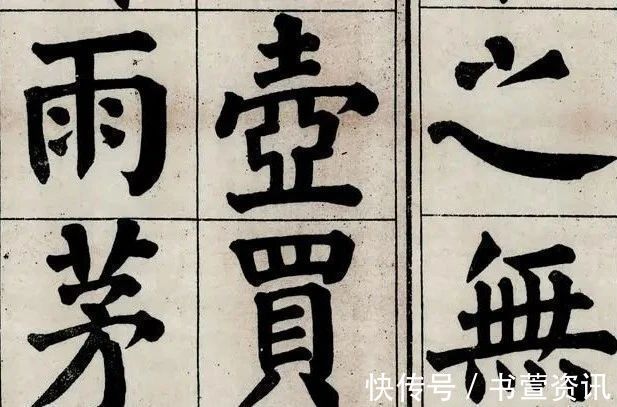 之無
壺買
雨茅
快传号 / 书萱资讯